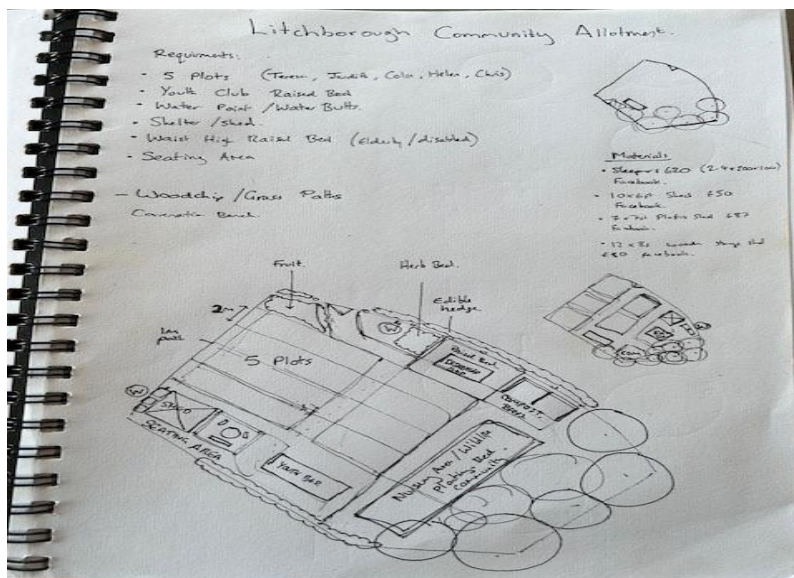 Litchborough Community Allotment.
Requirments:
• 5 Plots (Teresa, Judith, Colin, Helen, Chris)
• Youth Club Raised Bed
• Water Point / Water Butts.
• Shelter / shed.
• Waist High Raised Bed (Elderly / disabled)
• Seating Area
– Woodchip / Grass Paths
Coronation Bench.
Materials
• Sleepers £20
Facebook.
• 10x6ft Shed £50
Facebook.
• 7x7ft Plastic Shed £87
Facebook.
• 12 x 8ft wooden shed
£80 facebook.
Fruit.
Herb Bed.
Edible
hedge
2m
1m
5 Plots
W
Raised Bed
W
SHED
SEATING AREA
COMPOST
Nursery Area / Wildlife
Planting Bed
Community